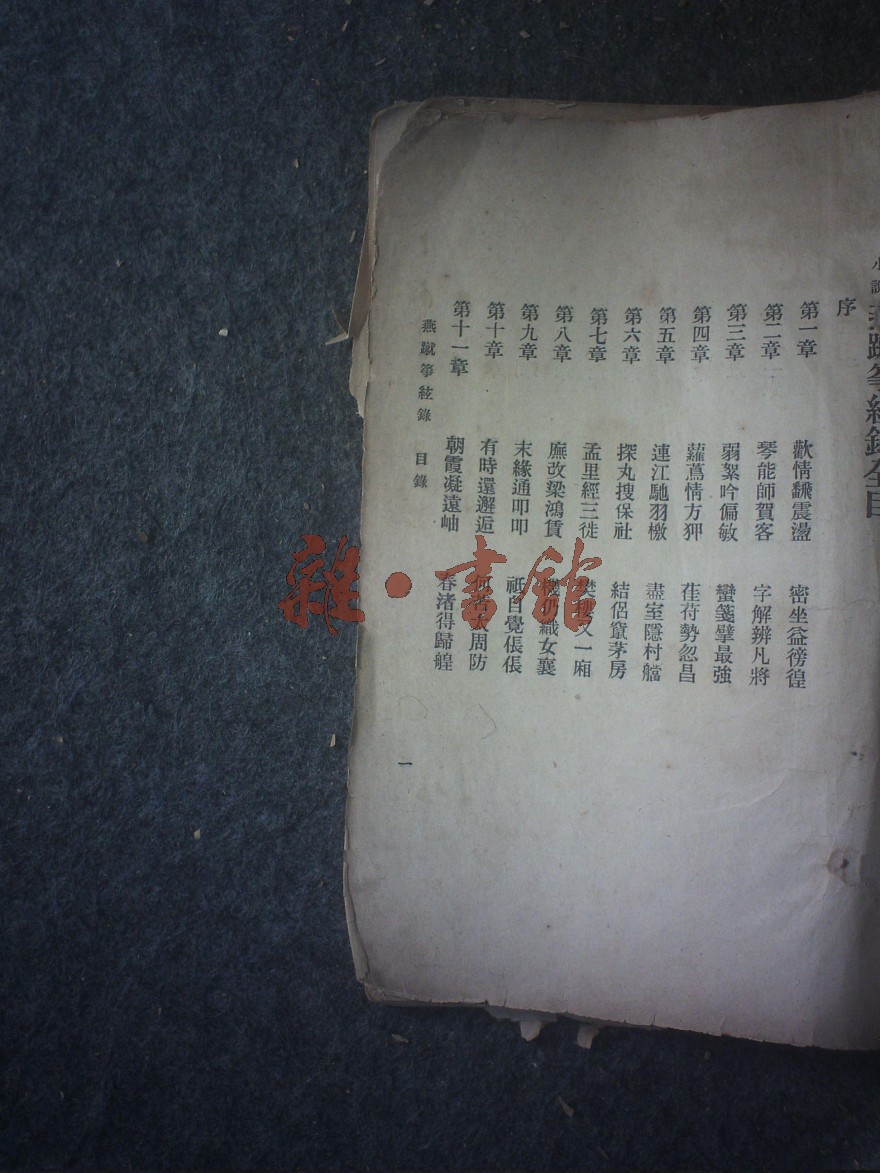 小說燕蹴箏絃錄全目
序
第一章 歡情飜震盪 密坐益徬徨
第二章 琴能師賀客 字解辨凡將
第三章 弱絮吟偏敏 蠻箋擘最強
第四章 蘿蔦情方狎 萑苻勢忽昌
第五章 連江馳羽檄 盡室隱村艡
第六章 探丸搜保社 結侶竄茅房
第七章 孟里經三徙 樊樓又一廂
第八章 廡改梁鴻賃 機仍織女襄
第九章 末緣通叩叩 祇自覺倀倀
第十章 有時還邂逅 何苦太周防
第十一章 朝霞凝遠岫 春渚得歸艎
燕蹴箏絃錄 目錄 一
雜·書館